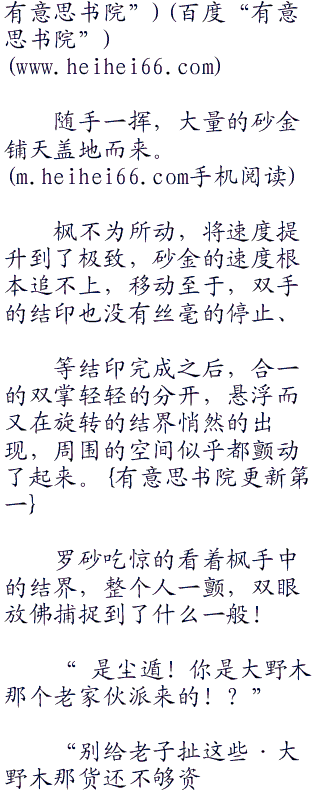 有意思书院”)(百度“有意
思书院”)
(www.heihei66.com)
随手一挥，大量的砂金
铺天盖地而来。
(m.heihei66.com手机阅读)
枫不为所动，将速度提
升到了极致，砂金的速度根
本追不上，移动至于，双手
的结印也没有丝毫的停止、
等结印完成之后，合一
的双掌轻轻的分开，悬浮而
又在旋转的结界悄然的出
现，周围的空间似乎都颤动
了起来。{有意思书院更新第
一}
罗砂吃惊的看着枫手中
的结界，整个人一颤，双眼
放佛捕捉到了什么一般！
“ 是尘遁！你是大野木
那个老家伙派来的！？”
“别给老子扯这些·大
野木那货还不够资